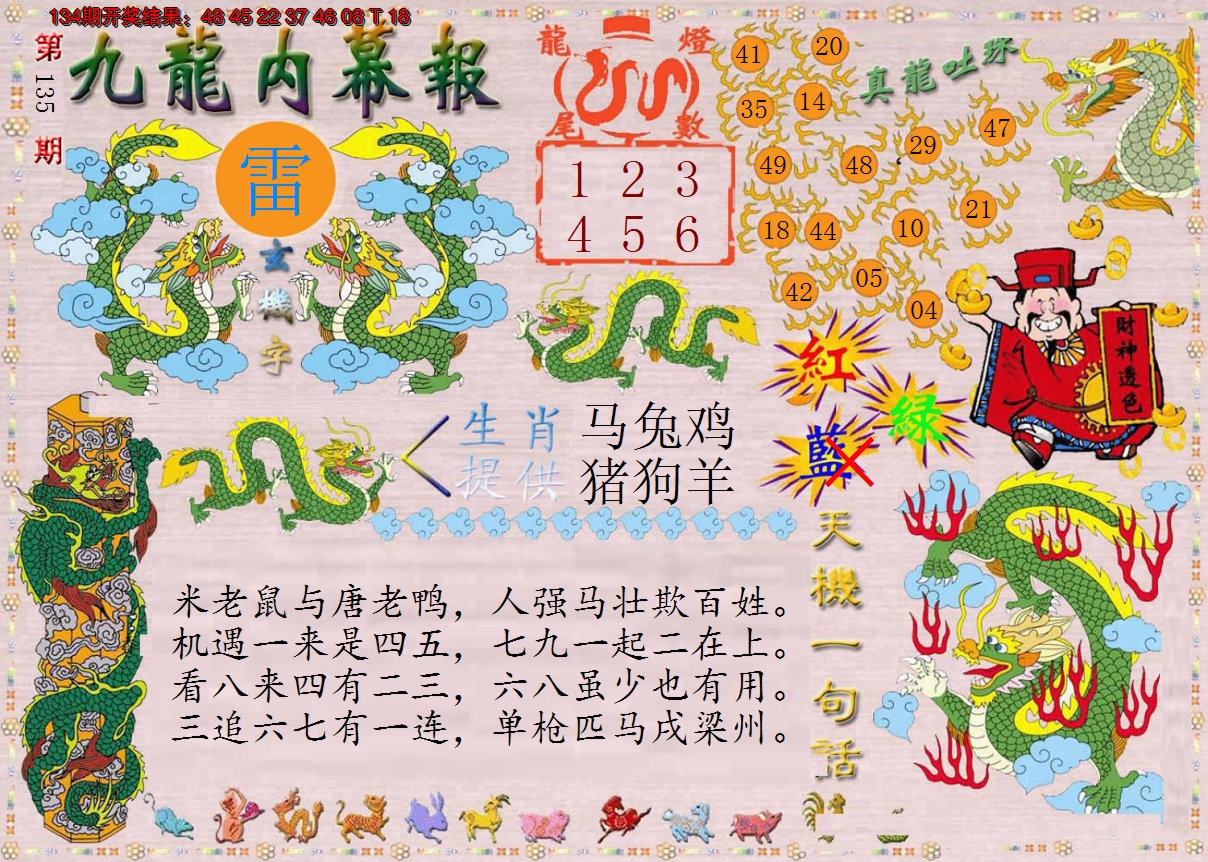 134期开奖结果：48 45 22 37 46 08 T 18
第135期
九龍内幕報
雷
玄機字
龍燈
尾數
1 2 3
4 5 6
真龍吐珠
41 20
35 14
49 48 29 47
18 44 10 21
42 05 04
紅
綠
藍
財神透色
生肖提供
马兔鸡
猪狗羊
天機一句话
米老鼠与唐老鸭，人强马壮欺百姓。
机遇一来是四五，七九一起二在上。
看八来四有二三，六八虽少也有用。
三追六七有一连，单枪匹马戌梁州。